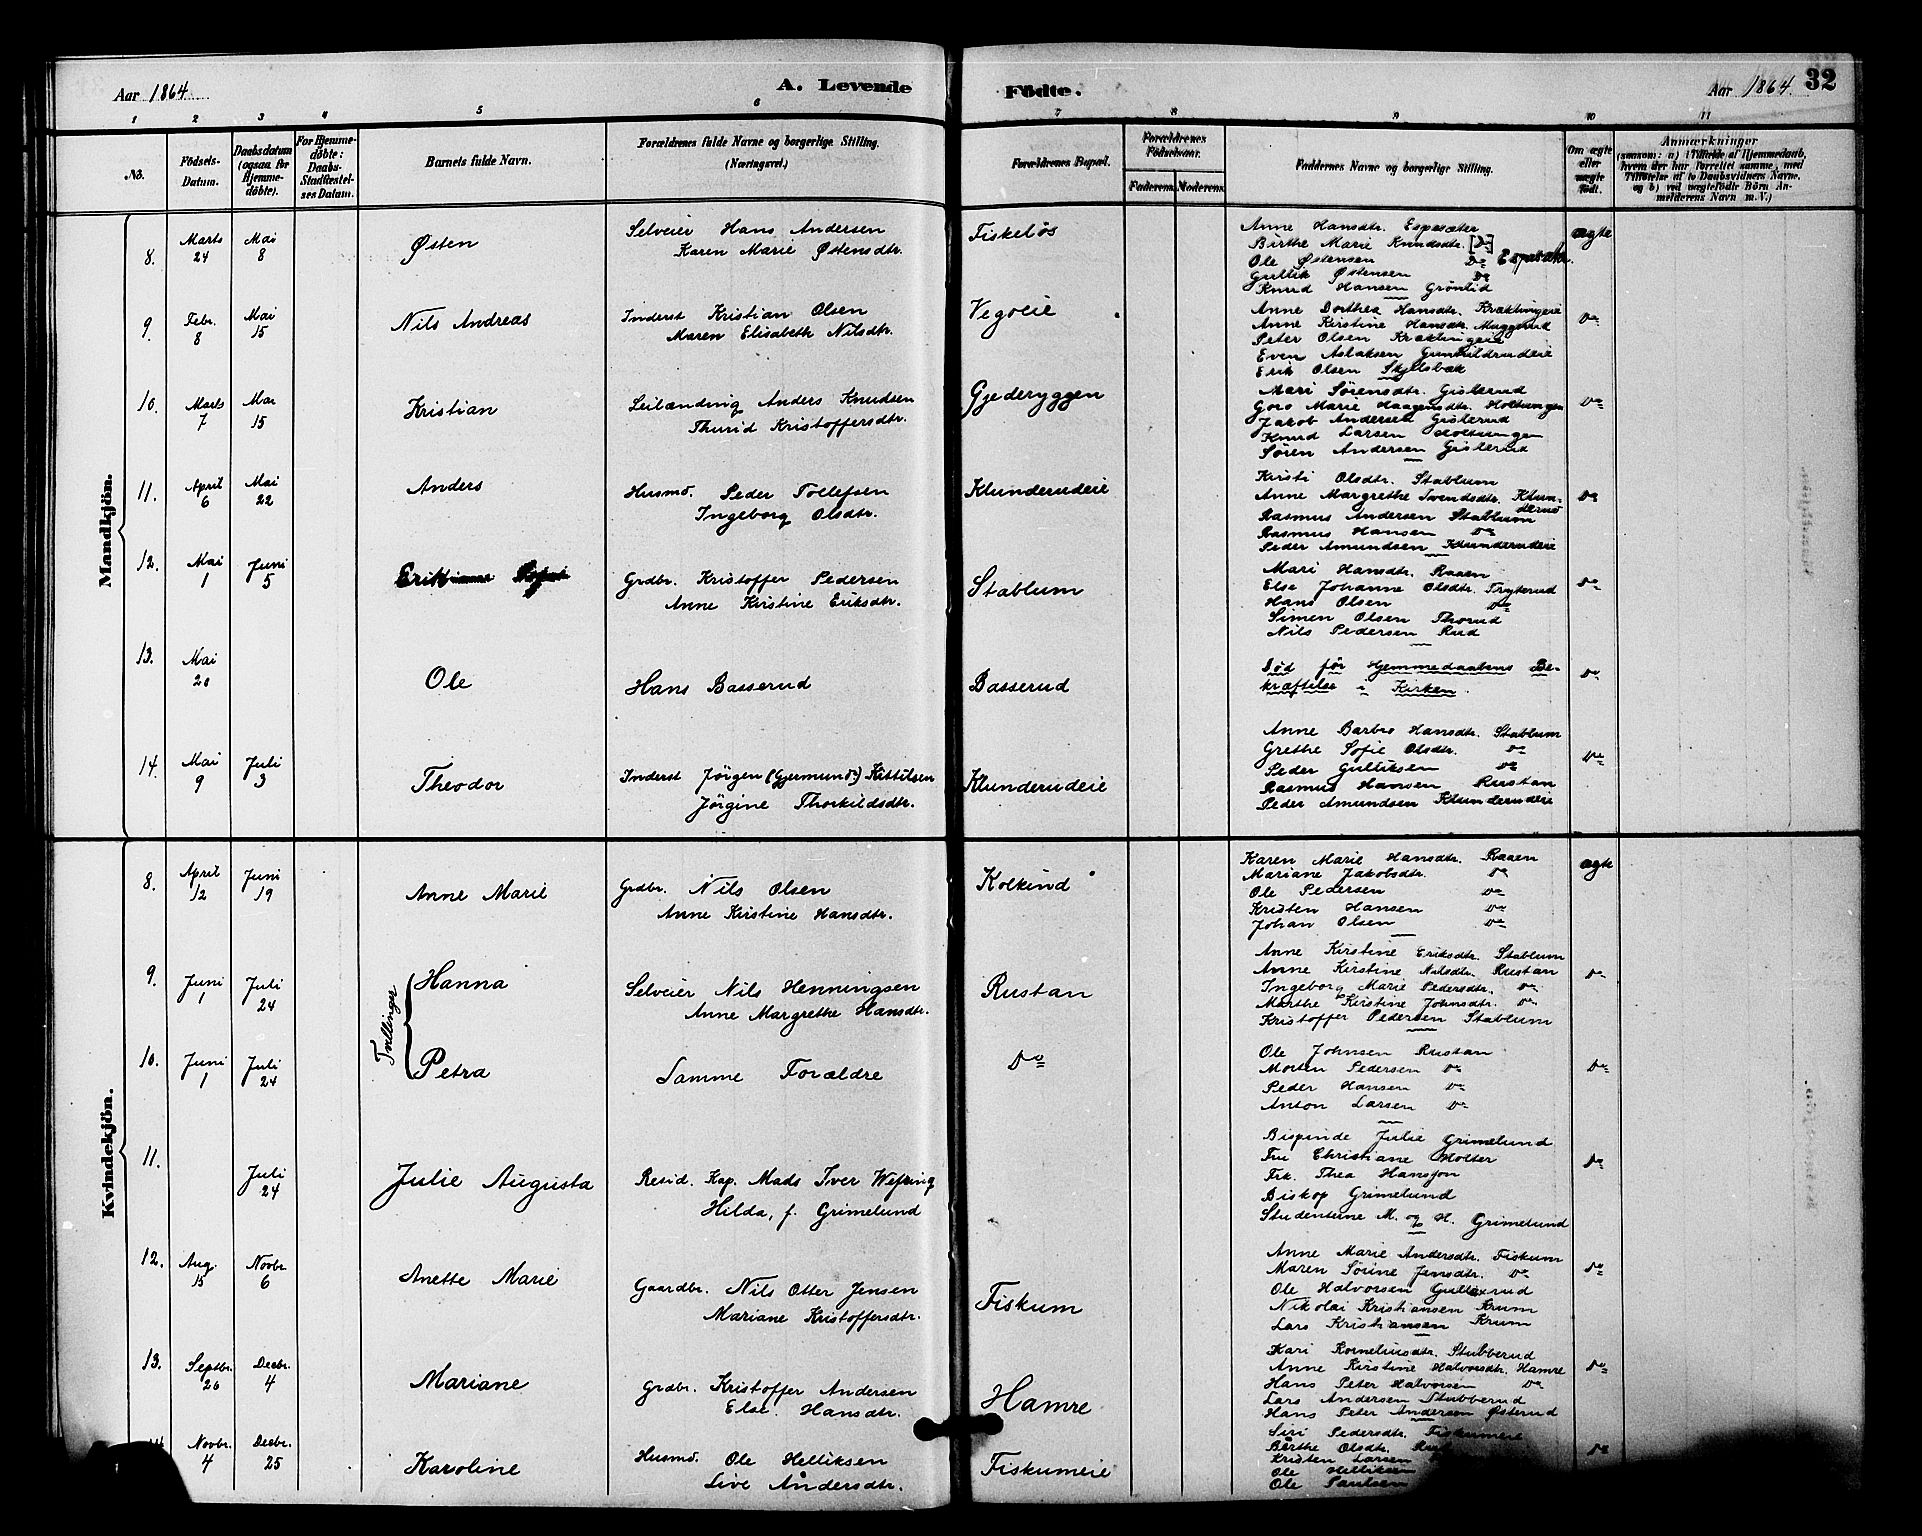 Aar 1864
A. Levende
Födte.
Aar 1864.
32
1 2 3 4 5 6 7 8 9 10 11
No.
Födsels-Datum.
Daabsdatum (ogsaa for Hjemmedöbte).
For Hjemmedöbte: Daabs-Stadfæstelses Datum.
Barnets fulde Navn.
Forældrenes fulde Navne og borgerlige Stilling. (Næringsvei.)
Forældrenes Bopæl.
Forældrenes Födselsaar.
Faderens. Moderens.
Faddernes Navne og borgerlige Stilling.
Om ægte eller uægte födt.
Anmærkninger
(saasom: a) i Tilfælde af Hjemmedaab, hvem der har forrettet samme, med Tilföielse af to Daabsvidners Navne, og b) ved uægtefödte Börn Anmelderens Navn m. V.)
Mandkjön.
8. Marts 24 Mai 8 Østen
Selveier Hans Andersen
Karen Marie Østensdtr.
Fiskeløs
Anne Hansdtr. Espesæter
Birthe Marie Knudsdtr. [Do]
Ole Østensen Do
Gullik Østensen Do
Knud Hansen Grönlid
ægte
9. Febr. 8 Mai 15 Nils Andreas
Inderst Kristian Olsen
Maren Elisabeth Nilsdtr.
Vegoeie
Anne Dorthea Hansdtr. Kræklingeie
Anne Kirstine Hansdtr. Muggerud
Peter Olsen Kræklingeie
Even Aslaksen Gunhildrudeie
Erik Olsen Skjelsbæk
Do
10. Marts 7 Mai 15 Kristian
Leilænding Anders Knudsen
Thurid Kristoffersdtr.
Gjederyggen
Mari Sörensdtr. Gislerud
Goro Marie Haagensdtr. Holtungen
Jakob Andersen Gislerud
Knud Larsen Holtungen
Sören Andersen Gislerud
Do
11. April 6 Mai 22 Anders
Husmd. Peder Tollefsen
Ingeborg Olsdtr.
Klunderudeie
Kristi Olsdtr. Stablum
Anne Margrethe Svendsdtr. Klunderud
Rasmus Andersen Stablum
Rasmus Hansen Do
Peder Amundsen Klunderudeie
Do
12. Mai 1 Juni 5
Grdbr. Kristoffer Pedersen
Anne Kirstine Eriksdtr.
Stablum
Mari Hansdtr. Raaen
Else Johanne Olsdtr. Tryterud
Hans Olsen Do
Simen Olsen Thorud
Nils Pedersen Rud
Do
13. Mai 20 Ole
Hans Basserud
Basserud
Död før Hjemmedaabens Bekræftelse i Kirken.
Do
14. Mai 9 Juli 3 Theodor
Inderst Jörgen (Gjermunds) Kittilsen
Jörgine Thorkildsdtr.
Klunderudeie
Anne Barbro Hansdtr. Stablum
Grethe Sofie Olsdtr. Do
Peder Gulliksen Do
Rasmus Hansen Rustan
Peder Amundsen Klunderudeie
Do
Kvindekjön.
8. April 12 Juni 19 Anne Marie
Grdbr. Nils Olsen
Anne Kirstine Hansdtr.
Kolkind
Karen Marie Hansdtr. Raaen
Mariane Jakobsdtr. Do
Ole Pedersen Do
Kristen Hansen Do
Johan Olsen Do
ægte
9. Juni 1 Juli 24 Tvillinger Hanna
Selveier Nils Henningsen
Anne Margrethe Hansdtr.
Rustan
Anne Kirstine Eriksdtr. Stablum
Anne Kirstine Nilsdtr. Rustan
Ingeborg Marie Pedersdtr. Do
Marthe Kirstine Johnsdtr. Do
Kristoffer Pedersen Stablum
Do
10. Juni 1 Juli 24 Petra
Samme Forældre
Do
Ole Johnsen Rustan
Morten Pedersen Do
Peder Hansen Do
Anton Larsen Do
Do
11. Juli 24 Julie Augusta
Resid. Kap. Mads Iver Wefring
Hilda, f. Grimelund
Bispinde Julie Grimelund
Fru Christiane Molter
Frk. Thea Hansson
Biskop Grimelund
Studenterne M. og H. Grimelund
Do
12. Aug. 15 Novbr. 6 Anette Marie
Gaardbr. Nils Otter Jensen
Mariane Kristoffersdtr.
Fiskum
Anne Marie Andersdtr. Fiskum
Maren Sörine Jensdtr. Do
Ole Halvorsen Gullaxrud
Nikolai Kristiansen Krum
Lars Kristiansen Krum
Do
13. Septbr. 26 Decbr. 4 Mariane
Grdbr. Kristoffer Andersen
Else Hansdtr.
Hamre
Kari Korneliusdtr. Stubberud
Anne Kirstine Halvorsdtr. Hamre
Hans Peter Halvorsen Do
Lars Andersen Stubberud
Hans Peter Andersen Østerud
Do
Novbr. 4 Decbr. 25 Karoline
Husmd. Ole Helliksen
Live Andersdtr.
Fiskumeie
Siri Pedersdtr. Fiskumeie
Bërthe Olsdtr.
Kristen Larsen
Ole Helliksen
Ole Paulsen
Do